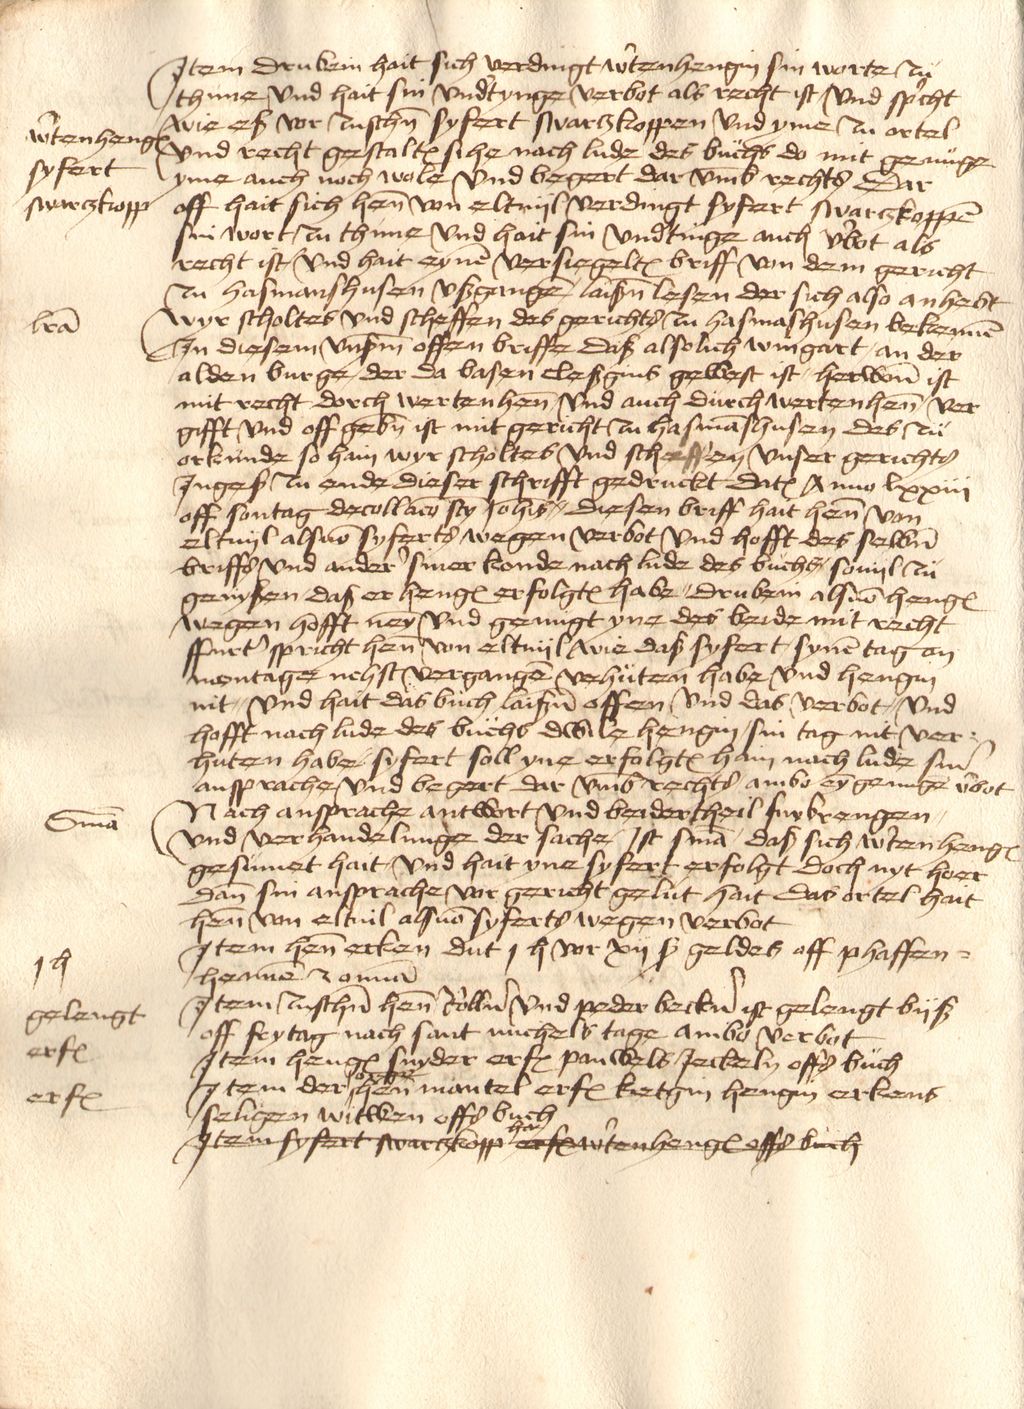 Item Drubein hait sich verdingt w'tenhengin sin worte zu
thune vnd hait sin vnd'tynge verbot als recht ist vnd sp'cht
wie eß vor zuschn syfert swartzkoppen vnd yme zu ortel
w'tenheng
vnd recht gestalt sihe nach lude des buchs do mit genuge
syfert
yme auch noch wole vnd begert dar vmb rechts Dar
swartzkopp
off hait sich hen von eltuil verdingt syfert swartzkoppe
sin wort zu thune vnd hait sin vnd'tinge auch v'bot als
recht ist vnd hait eyne versiegelt briff von dem gericht
zu hasmanshusen vßgange laißn lesen der sich also anhebt
lra
Wyr scholtes vnd scheffen des gerichts zu hasmashusen bekenne
In diesem vnßm offen briffe daß alsolich wingart an der
alden burge der da basen cleßgins gewest ist herwon ist
mit recht dorch wertenhen vnd auch durch wertenhen ver
gifft vnd off gebn ist mit gericht zu hasmashusen des zu
orkunde so hain wyr scholtes vnd scheffen vnser gerichts
Ingeß zu ende dieser schrifft gedruckt Dat Anno lxxiiii
off sontag decollaco sty Johis diesen briff hait hen von
eltuil alsuo syferts wegen verbot vnd hofft des selbn
briffs vnd ander siner konde nach lude des buchs souil zu
genyßen daß er heng erfolgt habe Drubein alsuo heng
wegen hofft ney vnd genugt yne des beide mit recht
ffurt' spricht hen von eltuil wie daß syfert syne tag an
montage nehst vergange verhuten habe vnd hengin
nit vnd hait das buch laißn offen vnd das verbot vnd
hofft nach lude des buchs dwile hengin sin tag nit ver-
huten habe syfert soll yne erfolgt hain nach lude sin'
ansprache vnd begert dar vmb rechts ambo ey genuge v'bot
Sma
Nach ansprache antwort vnd beidertheil furbrengen
vnd verhandelunge der sache Ist sma daß sich w'tenheng
gesumet hait vnd hait yne syfert erfolgt doch nyt hoer
dan sin ansprache vor gericht gelut hait das ortel hait
hen von eltuil alsuo syferts wegen verbot
1 h
Item hen erken dut 1 h vor xij ß geldes off phaffen-
henne z omnia
gelengt
Item zuschn hen und peder beckn ist gelengt biß
off frytag nach sant michels tage ambo verbot
erf
Item heng snyder erf pauwels Jeckeln offs buch
erf
Item der junge hen mantel erf kietgin hengin erkens
seligen witwen offs buch
Item syfert swartzkopp hait erf w'tenheng offs buch